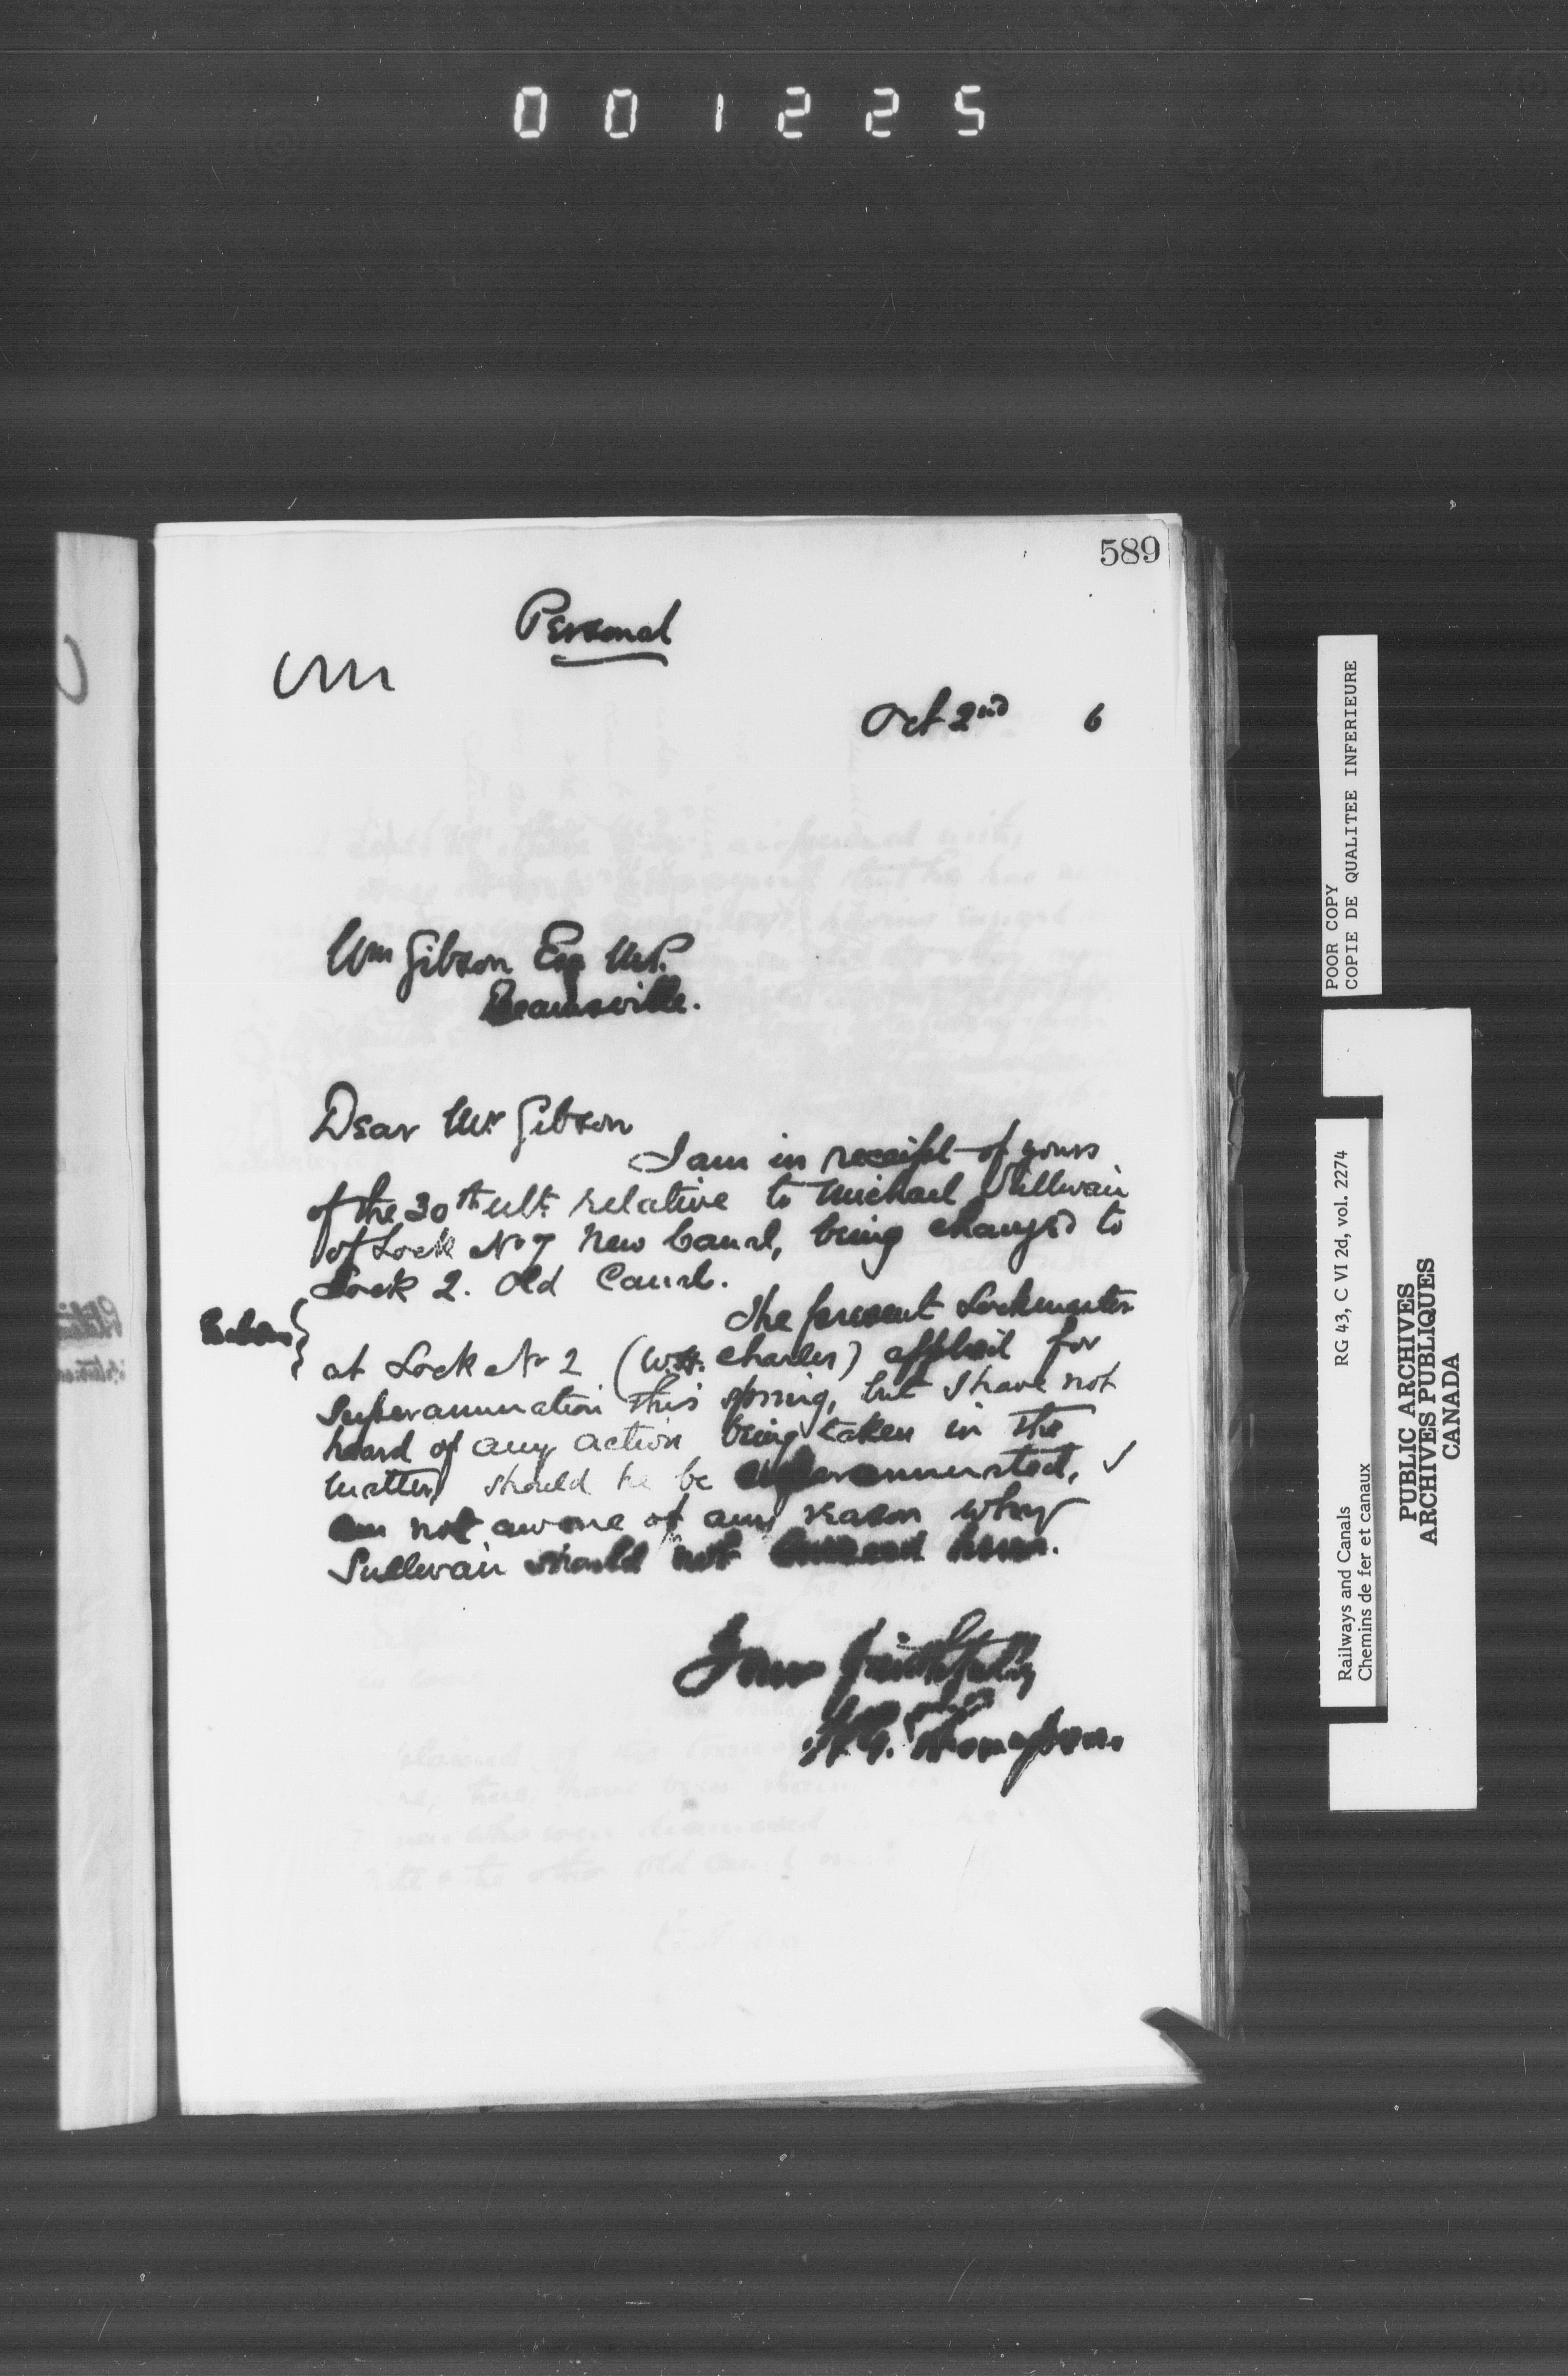 001225
589
Personal
Oct 2nd 6
Wm Gibson Esq M.P.
Beamsville.
Dear Mr Gibson
I am in receipt of yours
of the 30th ult. relative to Michael Sullivan
of Lock No 7 New Canal, being changed to
Lock 2. Old Canal.
The present Lockmaster
at Lock No 2 (W.H. Charles) applied for
Superannuation this spring, but I have not
heard of any action being taken in the
matter, should he be superannuated, I
am not aware of any reason why
Sullivan should not succeed him.
Yours faithfully
W.G. Thompson.
POOR COPY
COPIE DE QUALITEE INFERIEURE
Railways and Canals RG 43, C VI 2d, vol. 2274
Chemins de fer et canaux
PUBLIC ARCHIVES
ARCHIVES PUBLIQUES
CANADA